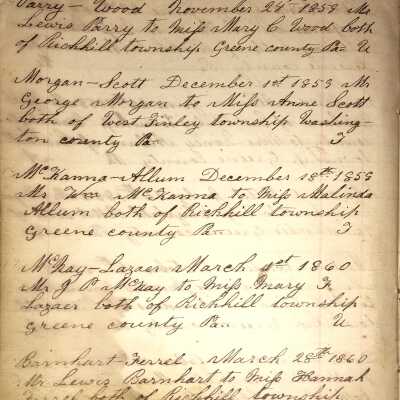 Parry — Wood November 28th 1858 Mr
Lewis Parry to Miss Mary C Wood both
of Richhill township Greene county Pa= U
Morgan—Scott December 1st 1853 Mr
George Morgan to Miss Anne Scott
both of West Finley township Washing-
ton county Pa= T
McKanna—Allum December 18th 1858
Mr Wm McKanna to Miss Malinda
Allum both of Richhill township
Greene county Pa= T
McKay—Lazaer March 1st 1860
Mr J P McKay to Miss Mary F
Lazaer both of Richhill township
Greene county Pa= U
Barnhart-Ferrel March 28th 1860
Mr Lewis Barnhart to Miss Hannah
Ferrel both of Richhill township